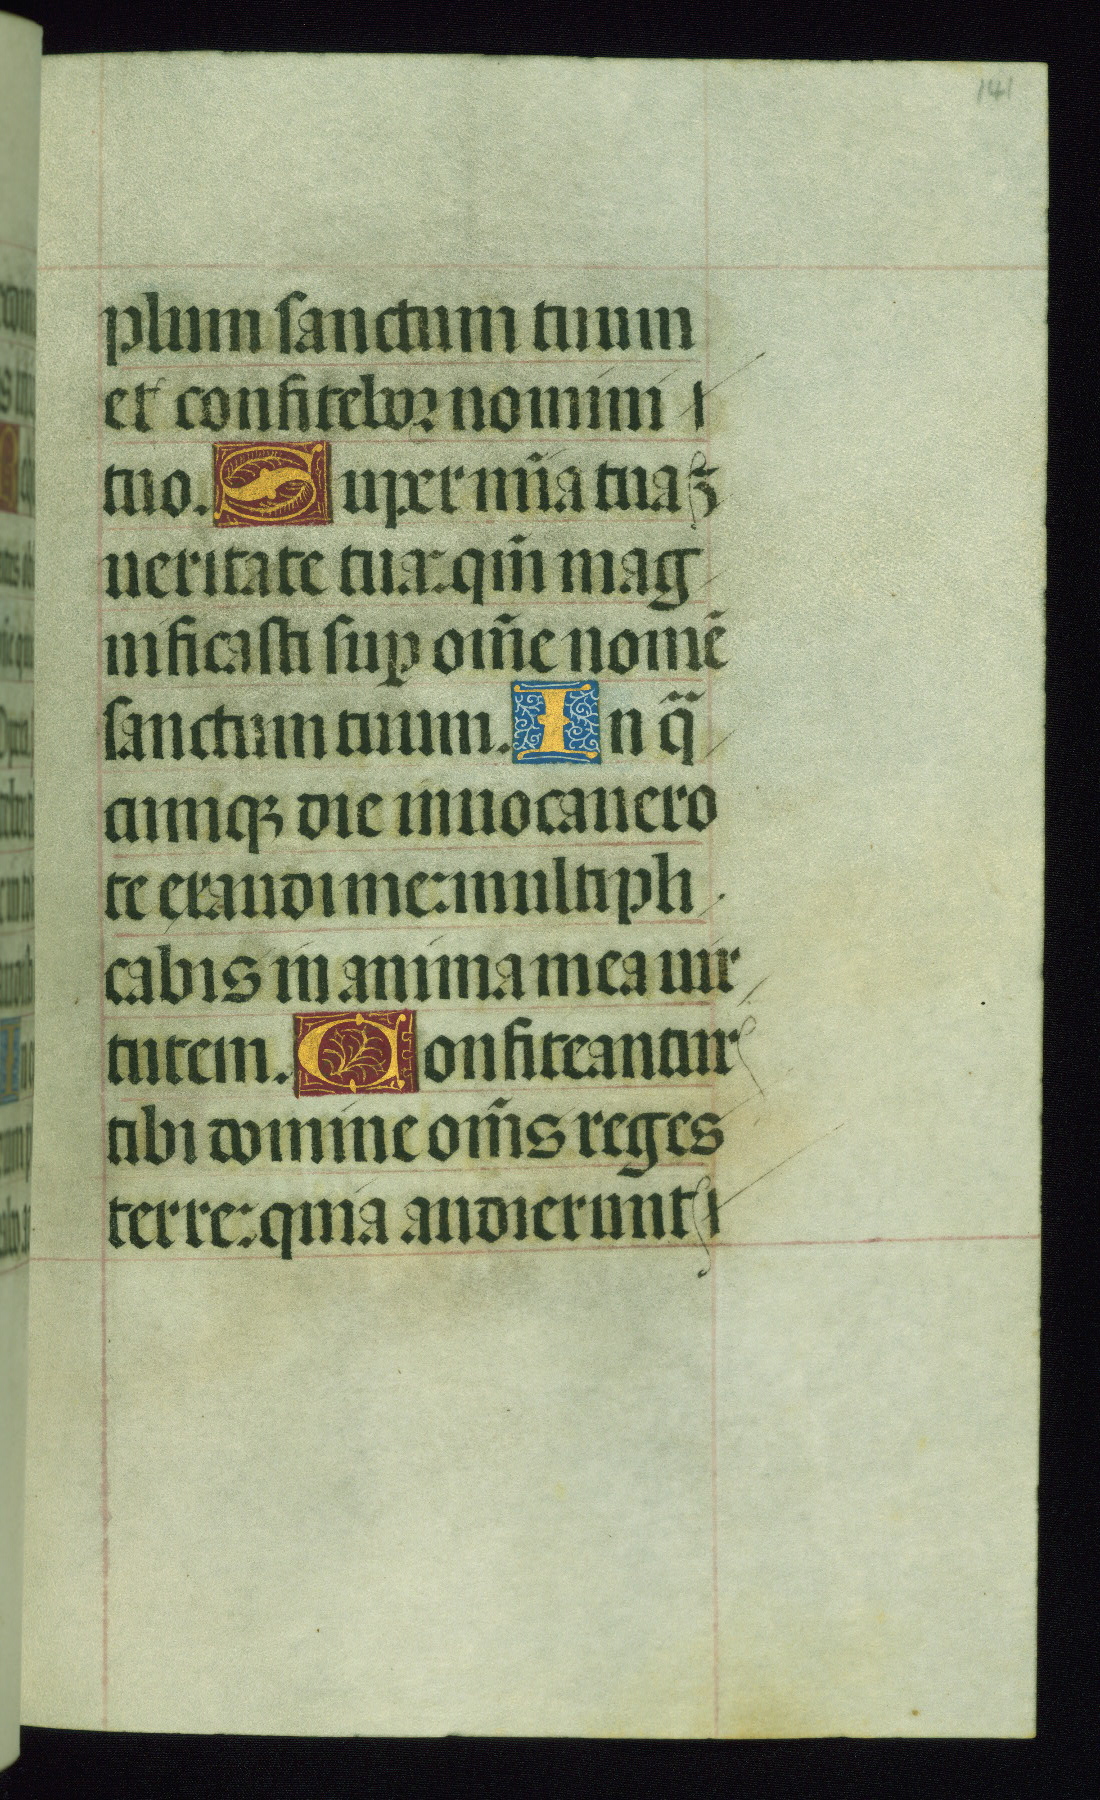 141
plum sanctum tuum
et confitebor nomini
tuo. Super mīa tua ꝫ
ueritate tua: qm̄ mag
nificasti sup om̄e nomē
sanctum tuum. In q̄
cumqꝫ die inuocauero
te exaudi me: multipli
cabis in anima mea uir
tutem. Confiteantur
tibi domine om̄s reges
terre: quia audierunt